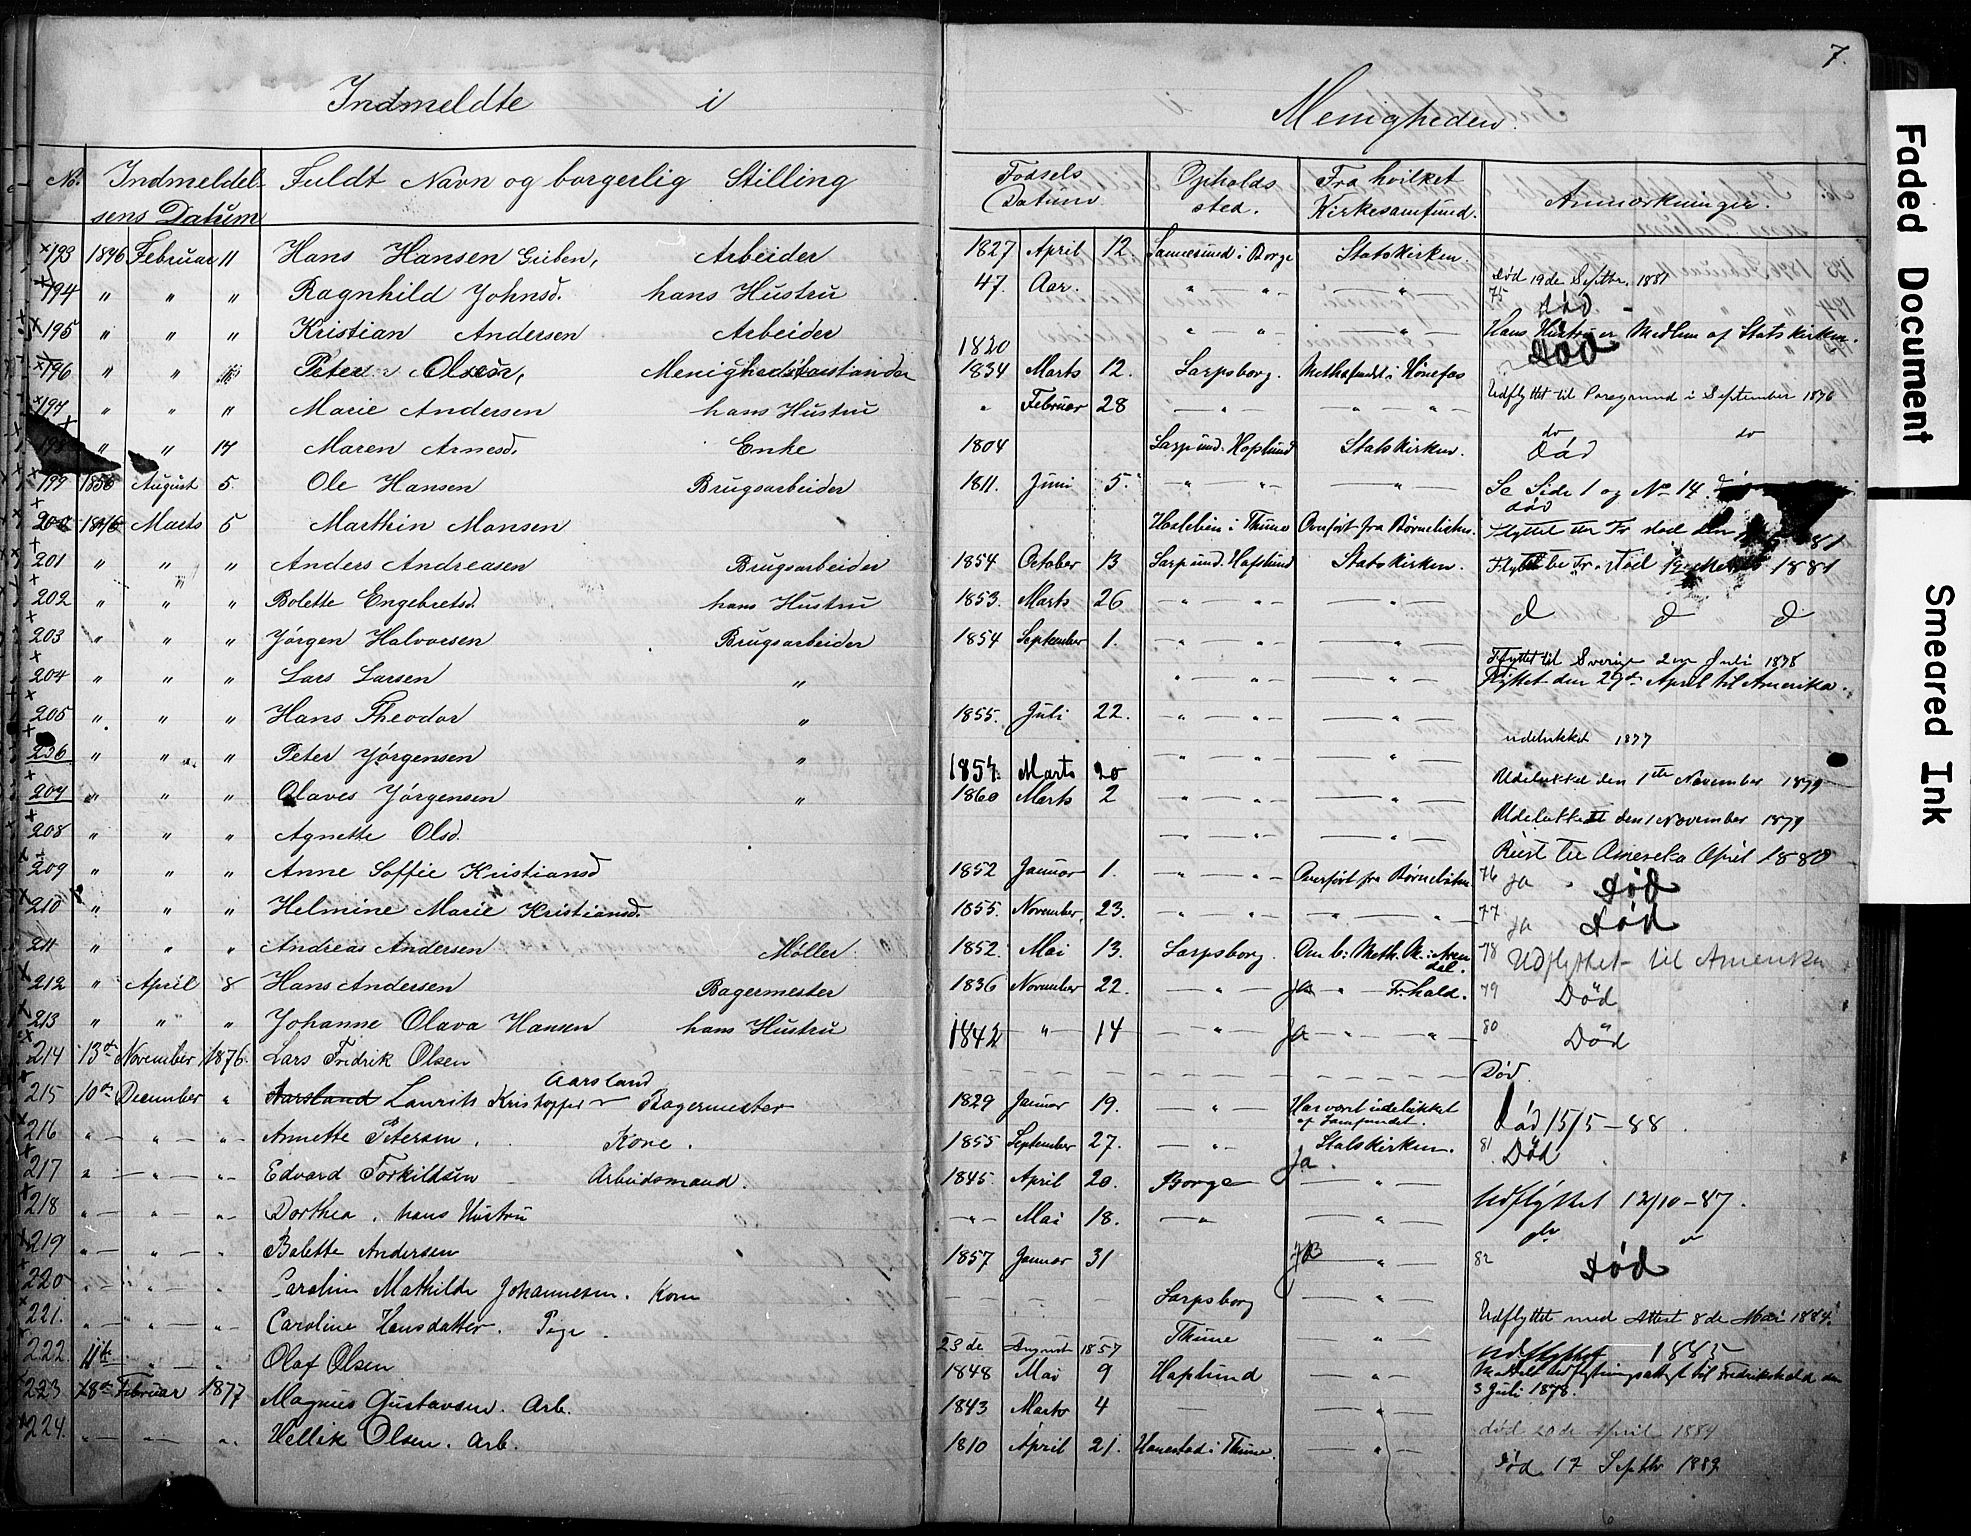 7.
Indmeldte i Menigheden.
No. Indmeldelsens Datum Fuldt Navn og borgerlig Stilling Fødsels Datum Opholds sted. Fra hvilket Kirkesamfund. Anmærkninger.
193 1876 Februar 11 Hans Hansen Arbeider 1827 April 12. Sannesund i Borge Statskirken. Død 19de Septbr. 1881
194 " " " Ragnhild Johnsd. hans Hustru 47. Aar. " " " 75 Død
195 " " " Kristian Andersen Arbeider 1820 " " " Hans Hustru er Medlem af Statskirken. Død
196 " " " Peter Olsen, Menighedsforstander 1834 Marts 12. Sarpsborg. i Hønefos Udflyttet til Porsgrund i September 1876
197 " " " Marie Andersen hans Hustru " Februar 28 " " " do do
198 " " 17 Maren Arnesd. Enke 1804 Sarp und. Haflund Statskirken. Død
199 1856 August 5. Ole Hansen Brugsarbeider 1811. Juni 5. " " " Se Side 1 og No 14. død
200 1876 Marts 5 Marthin Monsen i Thune Overført fra Børnelisten. Flyttet til Fr. død den 81
201 " " " Anders Andreasen Brugsarbeider 1854 October 13 Sarp und. Hafslund Statskirken. Flyttet til Fr. død 1881
202 " " " Bolette Engebretsd. hans Hustru 1853. Marts 26 " " " d d d
203 " " " Jørgen Halvorsen Brugsarbeider 1854 September 1. " " " Flyttet til Sverige 2en Juli 1878
204 " " " Lars Larsen " " " " Flyttet den 29de April til Amerika.
205 " " " Hans Theodor " 1855. Juli 22. " " " udelukket 1877
206 " " " Peter Jørgensen " 1857. Marts 20 " " " Udelukket den 1ste November 1879
207 " " " Olaves Jørgensen " 1860 Marts 2 " " " Udelukket den 1 November 1879
208 " " " Agnette Olsd. " " " Reist til Amerika April 1880
209 " " " Anne Soffie Kristiansd 1852 Januar 1. " " Overført fra Børnelisten 76 Ja Død
210 " " " Helmine Marie Kristiansd. 1855. November 23. " " " " 77 Ja Død
211 " " " Andreas Andersen Møller 1852. Mai 13. Sarpsborg. Meth. M. i Arendal. 78 Udflyttet til Amerika
212 " April 8 Hans Andersen Bagermester 1836 November 22. " Ja " Fr.hald. 79 Død
213 " " " Johanne Olava Hansen hans Hustru 1842 " 14 " Ja " " 80 Død
214 13de November 1876. Lars Fredrik Olsen Død.
Aarsland
215 10de December " Aarsland Laurits Kristoffer Bagermester 1829 Januar 19. " Har været udelukket af Samfundet. Død 15/5-88
216 " " " Annette Petersen. Kone. 1855 September 27. " Statskirken. Ja. 81 Død
217 " " " Edvard Torkildsen Arbeidsmand. 1845. April 20. Borge " Udflyttet 12/10-87.
218 " " " Dorthea, hans Hustru " Mai 18. " " do
219 " " " Bolette Andersen 1857 Januar 31 Ja " 82 Død
220 " " " Caroline Mathilde Johannesen. Kone Sarpsborg " Udflyttet med Attest 8de Mai 1884.
221. " " " Caroline Hansdatter. Pige. 23de August 1857 Thune " Udflyttet 1885
222. 11te " " Olaf Olsen 1848 Mai 9 Haflund " til Fredrikshald den 3 Juli 1878.
223 18de Februar 1877 Magnus Gustavsen. Arb. 1843 Marts 4 " død 20de April 1884
224. " " " Hellik Olsen. Arb. 1810 April 21. i Thune. " Død 17 Septbr 1889
Faded Document
Smeared Ink